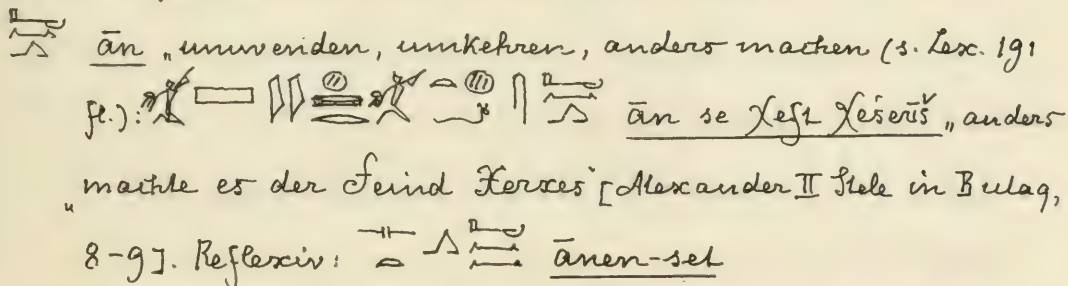 ān „umwenden, umkehren, anders machen (s. Lex. 191
fl.): ān se χeft χéšerīš „anders
machte es der Feind Xerxes“ [Alexander II Stele in Bulaq,
8-9]. Reflexiv: ānen-set